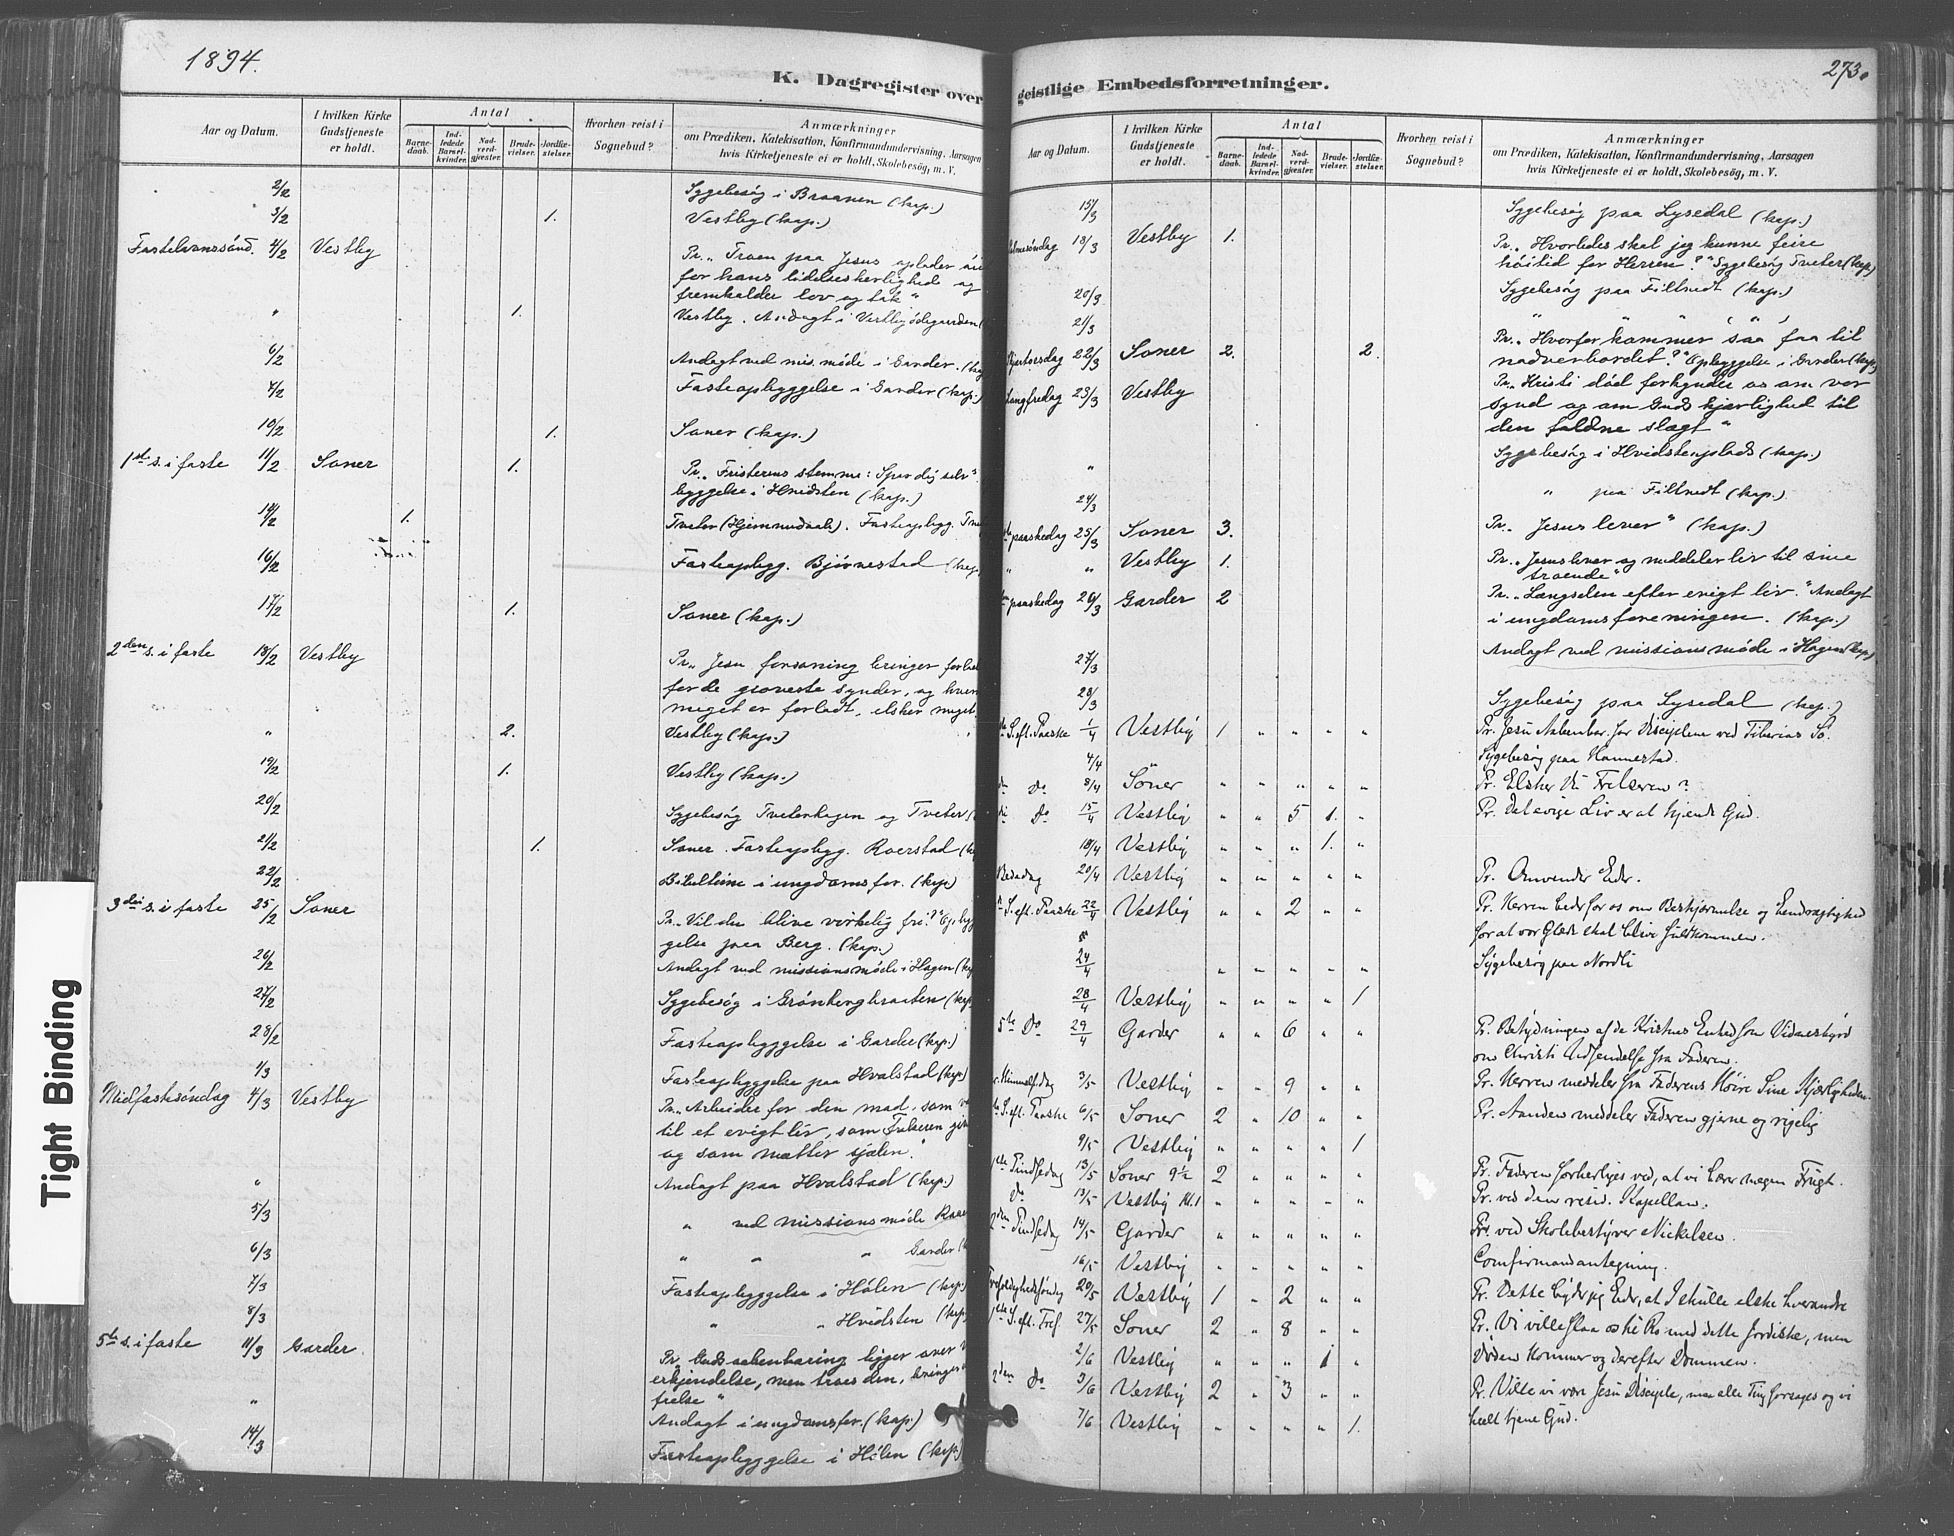 1894.
K. Dagregister over
Aar og Datum.
I hvilken Kirke Gudstjeneste er holdt.
Antal
Barne-daab.
Ind-ledede Barsel-kvinder.
Nad-verd-gjester.
Brude-vielser.
Jordfæ-stelser.
Hvorhen reist i Sognebud?
Anmærkninger
om Prædiken, Katekisation, Konfirmandundervisning, Aarsagen
hvis Kirketjeneste ei er holdt, Skolebesøg, m. V.
2/2 Sygebesøg i Braanen (kap.)
3/2 1. Vestby (kap.)
Fastelavnssönd. 4/2 Vestby Pr. „Troen paa Jesus oplader
for hans lidelsesherlighed og
fremkalder lov og tak“
" 1. Vestby. Andagt i Vestbyödegaarden
6/2 Andagt ved mis. möde i Garder.
7/2 Fasteopbyggelse i Garder (kap.)
10/2 1. Soner (kap.)
1ste s. i faste 11/2 Soner 1. Pr. „Fristerens stemme: Spar dig selv“
byggelse i Hvidsten (kap.)
14/2 1. Tveter (Hjemmedaab). Fasteopbygg.
16/2 Fasteopbygg. Bjørnestad (kap.
17/2 1. Soner (kap.)
2den s. i faste 18/2 Vestby Pr. „Jesu forsoning bringer
for de groveste synder, og hvem
meget er forladt, elsker meget.
" 2. Vestby (kap.)
19/2 1. Vestby (kap.)
20/2 Sygebesög Tveterhagen og Tveter
21/2 1. Soner. Fasteopbygg. Roerstad
22/2 Bibeltime i ungdomsfor. (kap)
3die s. i faste 25/2 Soner Pr. „Vil du blive virkelig fri?“
gelse paa Berg. (kap.)
26/2 Andagt ved missionsmöde i Hagen
27/2 Sygebesög i Grönbergbraaten (kap.
28/2 Fasteopbyggelse i Garder (kap.)
1/3 Fasteopbyggelse paa Hvalstad (kap)
Midfastesöndag 4/3 Vestby Pr. „Arbeider for den mad, som
til et evigt liv, som Frelseren
og som mætter sjælen.“
" Andagt paa Hvalstad (kap.)
5/3 " ved missionsmöde
6/3 " " " Garder
7/3 Fasteopbyggelse i Hölen (kap.)
8/3 " " Hvidsten (kap.)
5te s. i faste 11/3 Garder Pr. „Guds aabenbaring ligger over
erkjendelse, men troes den, bringer
frelse“
" Andagt i ungdomsfor. (kap.)
14/3 Fasteopbyggelse i Hölen (kap.)
geistlige Embedsforretninger.
273.
Aar og Datum.
I hvilken Kirke Gudstjeneste er holdt.
Antal
Barne-daab.
Ind-ledede Barsel-kvinder.
Nad-verd-gjester.
Brude-vielser.
Jordfæ-stelser.
Hvorhen reist i Sognebud?
Anmærkninger
om Prædiken, Katekisation, Konfirmandundervisning, Aarsagen
hvis Kirketjeneste ei er holdt, Skolebesøg, m. V.
15/3 Sygebesög paa Lysedal (kap.)
Palmesöndag 18/3 Vestby 1. Pr. „Hvorledes skal jeg kunne feire
höitid for Herren?“ Sygebesög Tveter (kap.)
20/3 Sygebesög paa Filtvedt (kap.)
21/3 " " " "
Skjærtorsdag 22/3 Soner 2. 2. Pr. „Hvorfor kommer saa faa til
nadverbordet?“ Opbyggelse i Garder (kap.)
Langfredag 23/3 Vestby Pr. „Kristi död forkynder os om vor
synd og om Guds kjærlighed til
den faldne slægt“
" Sygebesög i Hvidstenplads (kap.)
24/3 " paa Filtvedt (kap.)
paaskedag 25/3 Soner 3. Pr. „Jesus lever“ (kap.)
" " Vestby 1. Pr. „Jesus lever og meddeler liv til sine
troende“
paaskedag 26/3 Garder 2 Pr. „Længselen efter evigt liv.“ Andagt
i ungdomsforeningen. (kap.)
27/3 Andagt ved missionsmöde i Hagen (kap.)
28/3 Sygebesög paa Lysedal (kap.)
S. eft. Paaske 1/4 Vestby 1 " " " " Pr. Jesu Aabenbar. for Disciplene ved Tiberias Sö.
4/4 Sygebesög paa Hannestad.
Do 8/4 Soner " " " " " Pr. Elsker Du Frelseren?
Do 15/4 Vestby " " 5 1. " Pr. Det evige Liv er at kjende Gud.
18/4 Vestby " " " 1. "
Bededag 20/4 Vestby Pr. Omvender Eder.
S. eft. Paaske 22/4 Vestby " " 2 " " Pr. Herren beder for os om Beskjærmelse og Eendrægtighed
for at vor Glæde skal blive fuldkommen.
24/4 " " " " " Sygebesög paa Nordli
28/4 Vestby " " " " 1
5te Do 29/4 Garder " " 6 " " Pr. Betydningen af de Kristnes Enhed som Vidnesbyrd
om Christi Udsendelse fra Faderen.
Himmelfdag 3/5 Vestby " " 9 " " Pr. Herren meddeler fra Faderens Höire Sine Kjærligheden
S. eft. Paaske 6/5 Soner 2 " 10 " " Pr. Aanden meddeler Faderen gjerne og rigelig
9/5 Vestby " " " " 1
1ste Pindsedag 13/5 Soner 9½ 2 " " " " Pr. Faderen forherliges ved, at vi bærer megen Frugt.
Do 13/5 Vestby Kl. 1 " " " " " Pr. ved den resid. Kapellan.
2den Pindsedag 14/5 Garder " " " " " Pr. ved Skolebestyrer Nickelsen.
16/5 Vestby " " " " " Confirmandantegning.
Trefoldighedssöndag 20/5 Vestby 1 " 2 " " Pr. Dette byder jeg Eder, at I skulle elske hverandre
1ste S. eft. Tref. 27/5 Soner 2 " 8 " " Pr. Vi ville slaa os til Ro med dette Jordiske, men
Döden kommer og derefter Dommen.
2/6 Vestby " " " 1 "
2den Do 3/6 Vestby 2 " 3 " " Pr. Ville vi være Jesu Disciple, maa alle Ting forsages og vi
heelt tjene Gud.
7/6 Vestby " " " " 1.
Tight Binding